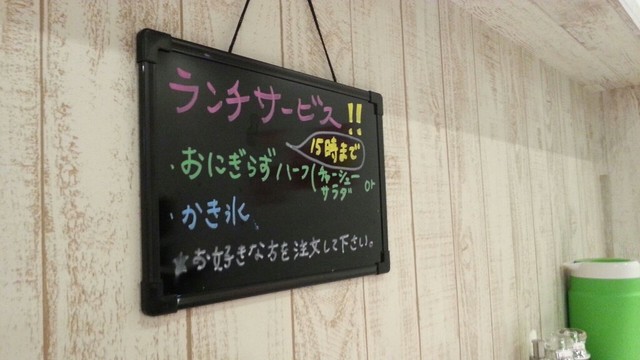 ランチサービス!!
15時まで
・おにぎらずハーフ(チャーシュー or
サラダ
・かき氷
★お好きな方を注文して下さい。